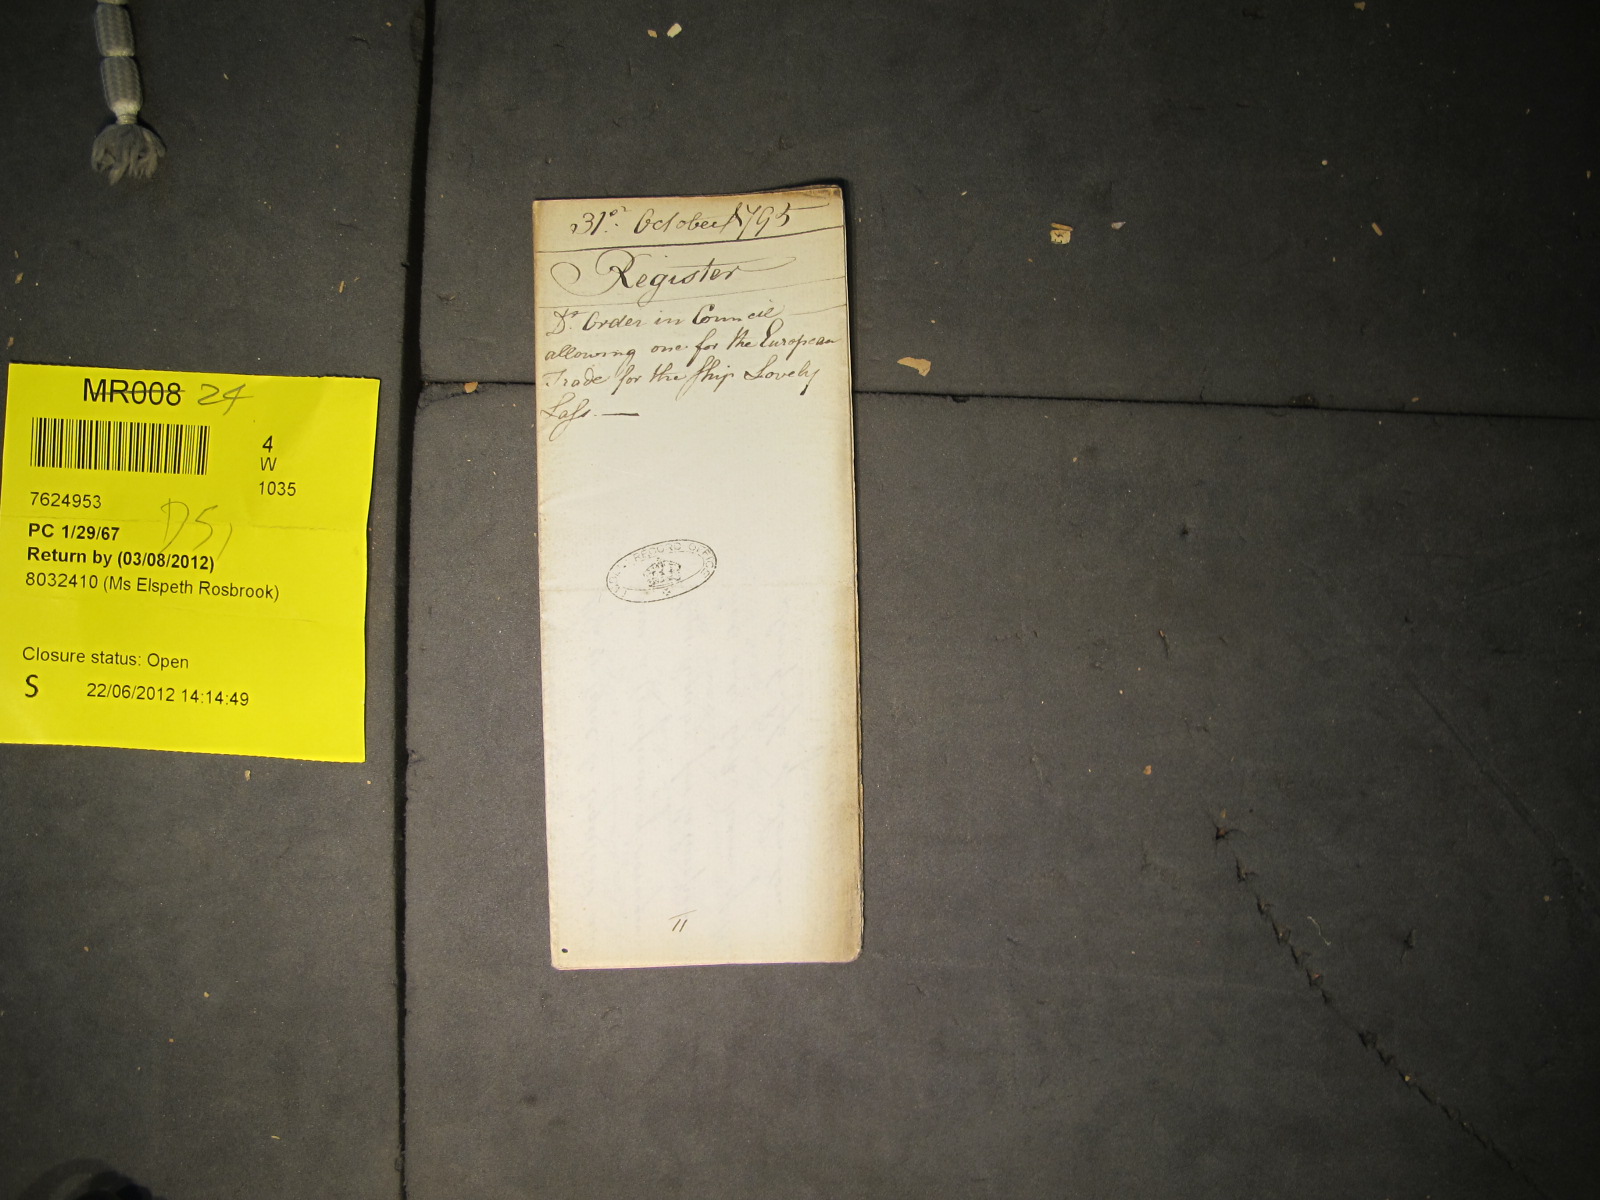 MR008 24
4
W
1035
7624953
DS1
PC 1/29/67
Return by (03/08/2012)
8032410 (Ms Elspeth Rosbrook)
Closure status: Open
S 22/06/2012 14:14:49
31st October 1795
Register
Dt. Order in Council
allowing one for the European
Trade for the Ship Lovely
Lass. —
PUBLIC RECORD OFFICE
11